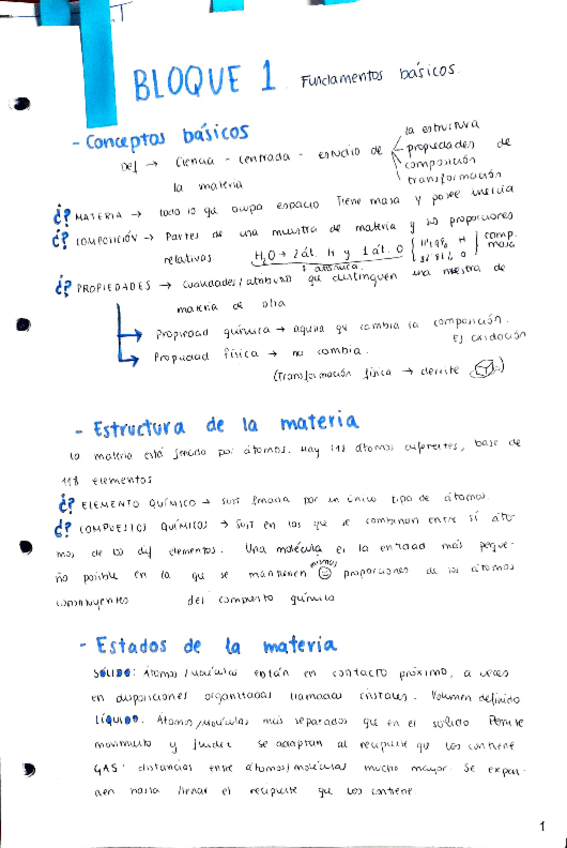 BLOQUE 1 Fundamentos básicos.
- Conceptos básicos
la estructura
Def → Ciencia - centrada - estudio de propiedades de
composición
transformación
la materia
¿? MATERIA → todo lo que ocupa espacio Tiene masa y posee inercia
¿? COMPOSICIÓN → Partes de una muestra de materia y sus proporciones
relativas H₂O → 2 át. H y 1 át. O H comp.
O masa
C. atómica.
¿? PROPIEDADES → cualidades/atributos que distinguen una muestra de
materia de otra
Propiedad química → aquella que cambia la composición.
Ej oxidación
Propiedad física → no cambia.
(Transformación física → derrite )
- Estructura de la materia
la materia está formada por átomos. Hay 118 átomos diferentes, base de
118 elementos
¿? ELEMENTO QUÍMICO → sust formada por un único tipo de átomos.
¿? COMPUESTOS QUÍMICOS → sust en las que se combinan entre sí áto-
mos de los dif elementos. Una molécula es la entidad más peque-
ña posible en la que se mantienen mismas proporciones de los átomos
constituyentes del compuesto químico
- Estados de la materia
SÓLIDO: Átomos/moléculas están en contacto próximo, a veces
en disposiciones organizadas llamadas cristales. Volumen definido
LÍQUIDO. Átomos/moléculas más separados que en el sólido Permite
movimiento y fluidez se adaptan al recipiente que los contiene
GAS: distancias entre átomos/moléculas mucho mayor. Se expan-
den hasta llenar el recipiente que los contiene
1